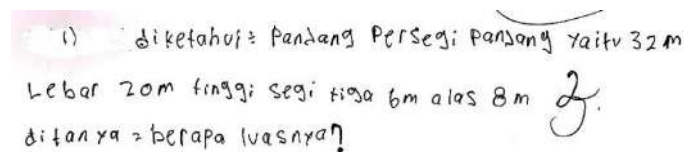 1) diketahui: Pandang Persegi panjang yaitu 32 m
Lebar 20m tinggi segi tiga 6m alas 8 m 2
ditanya = berapa luasnya?